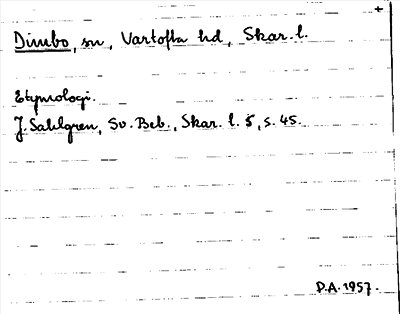 +
Dimbo, sn, Vartofta hd, Skar. l.
Etymologi.
J. Sahlgren, Sv. Beb., Skar. l. 5, s. 45.
D.A. 1957.